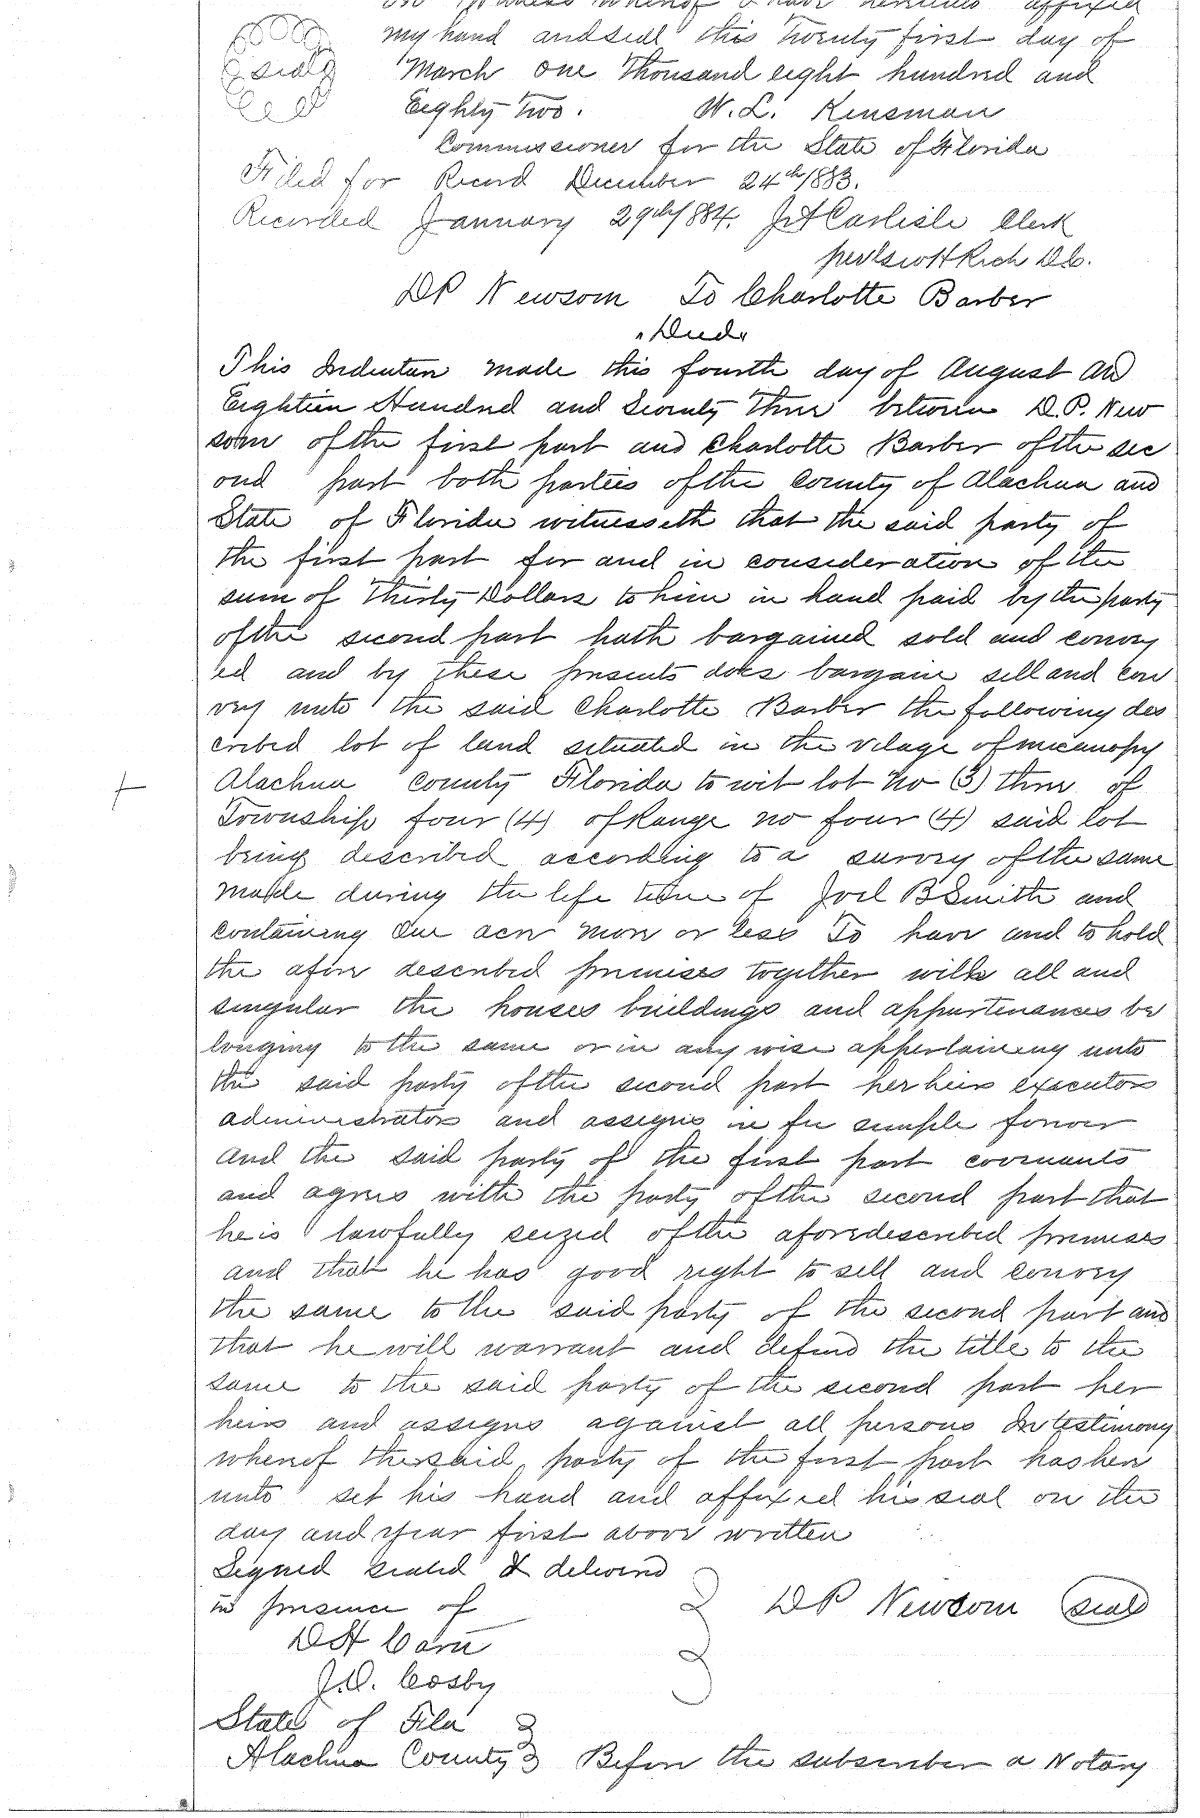 my hand and seal this Twenty first day of
seal March one Thousand eight hundred and
Eighty Two. W. L. Kinsman
Commissioner for the State of Florida
Filed for Record December 24th/1883.
Recorded January 29th/1884. J A Carlisle Clerk
per H Rich D.C.
D P Newsom To Charlotte Barber
"Deed"
This Indenture made this fourth day of August AD
Eighteen Hundred and Seventy Three between D.P. New
som of the first part and Charlotte Barber of the sec
ond part both parties of the County of Alachua and
State of Florida witnesseth that the said party of
the first part for and in consideration of the
sum of Thirty Dollars to him in hand paid by the party
of the second part hath bargained sold and convey
ed and by these presents does bargain sell and con
vey unto the said Charlotte Barber the following des
cribed lot of land situated in the village of micanopy
Alachua County Florida to wit lot No (3) three of
Township four (4) of Range no four (4) said lot
being described according to a survey of the same
made during the life time of Joel B Smith and
containing One acre more or less To have and to hold
the afore described premises together with all and
singular the houses buildings and appurtenances be
longing to the same or in any wise appertaining unto
the said party of the second part her heirs executors
administrators and assigns in fee simple forever
and the said party of the first part covenants
and agrees with the party of the second part that
he is lawfully seized of the aforedescribed premises
and that he has good right to sell and convey
the same to the said party of the second part and
that he will warrant and defend the title to the
same to the said party of the second part her
heirs and assigns against all persons In testimony
whereof the said party of the first part has here
unto set his hand and affixed his seal on the
day and year first above written
Signed sealed & delivered
in presence of D P Newsom seal
D H
J.D. Cosby
State of Fla
Alachua County Before the subscriber a Notary